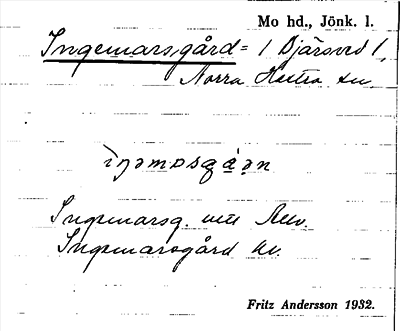 Mo hd., Jönk. l.
Ingemarsgård = 1 Djärsved 1,
Norra Hestra sn.
Ingemarsg.
Ingemarsgård hv.
Fritz Andersson 1932.